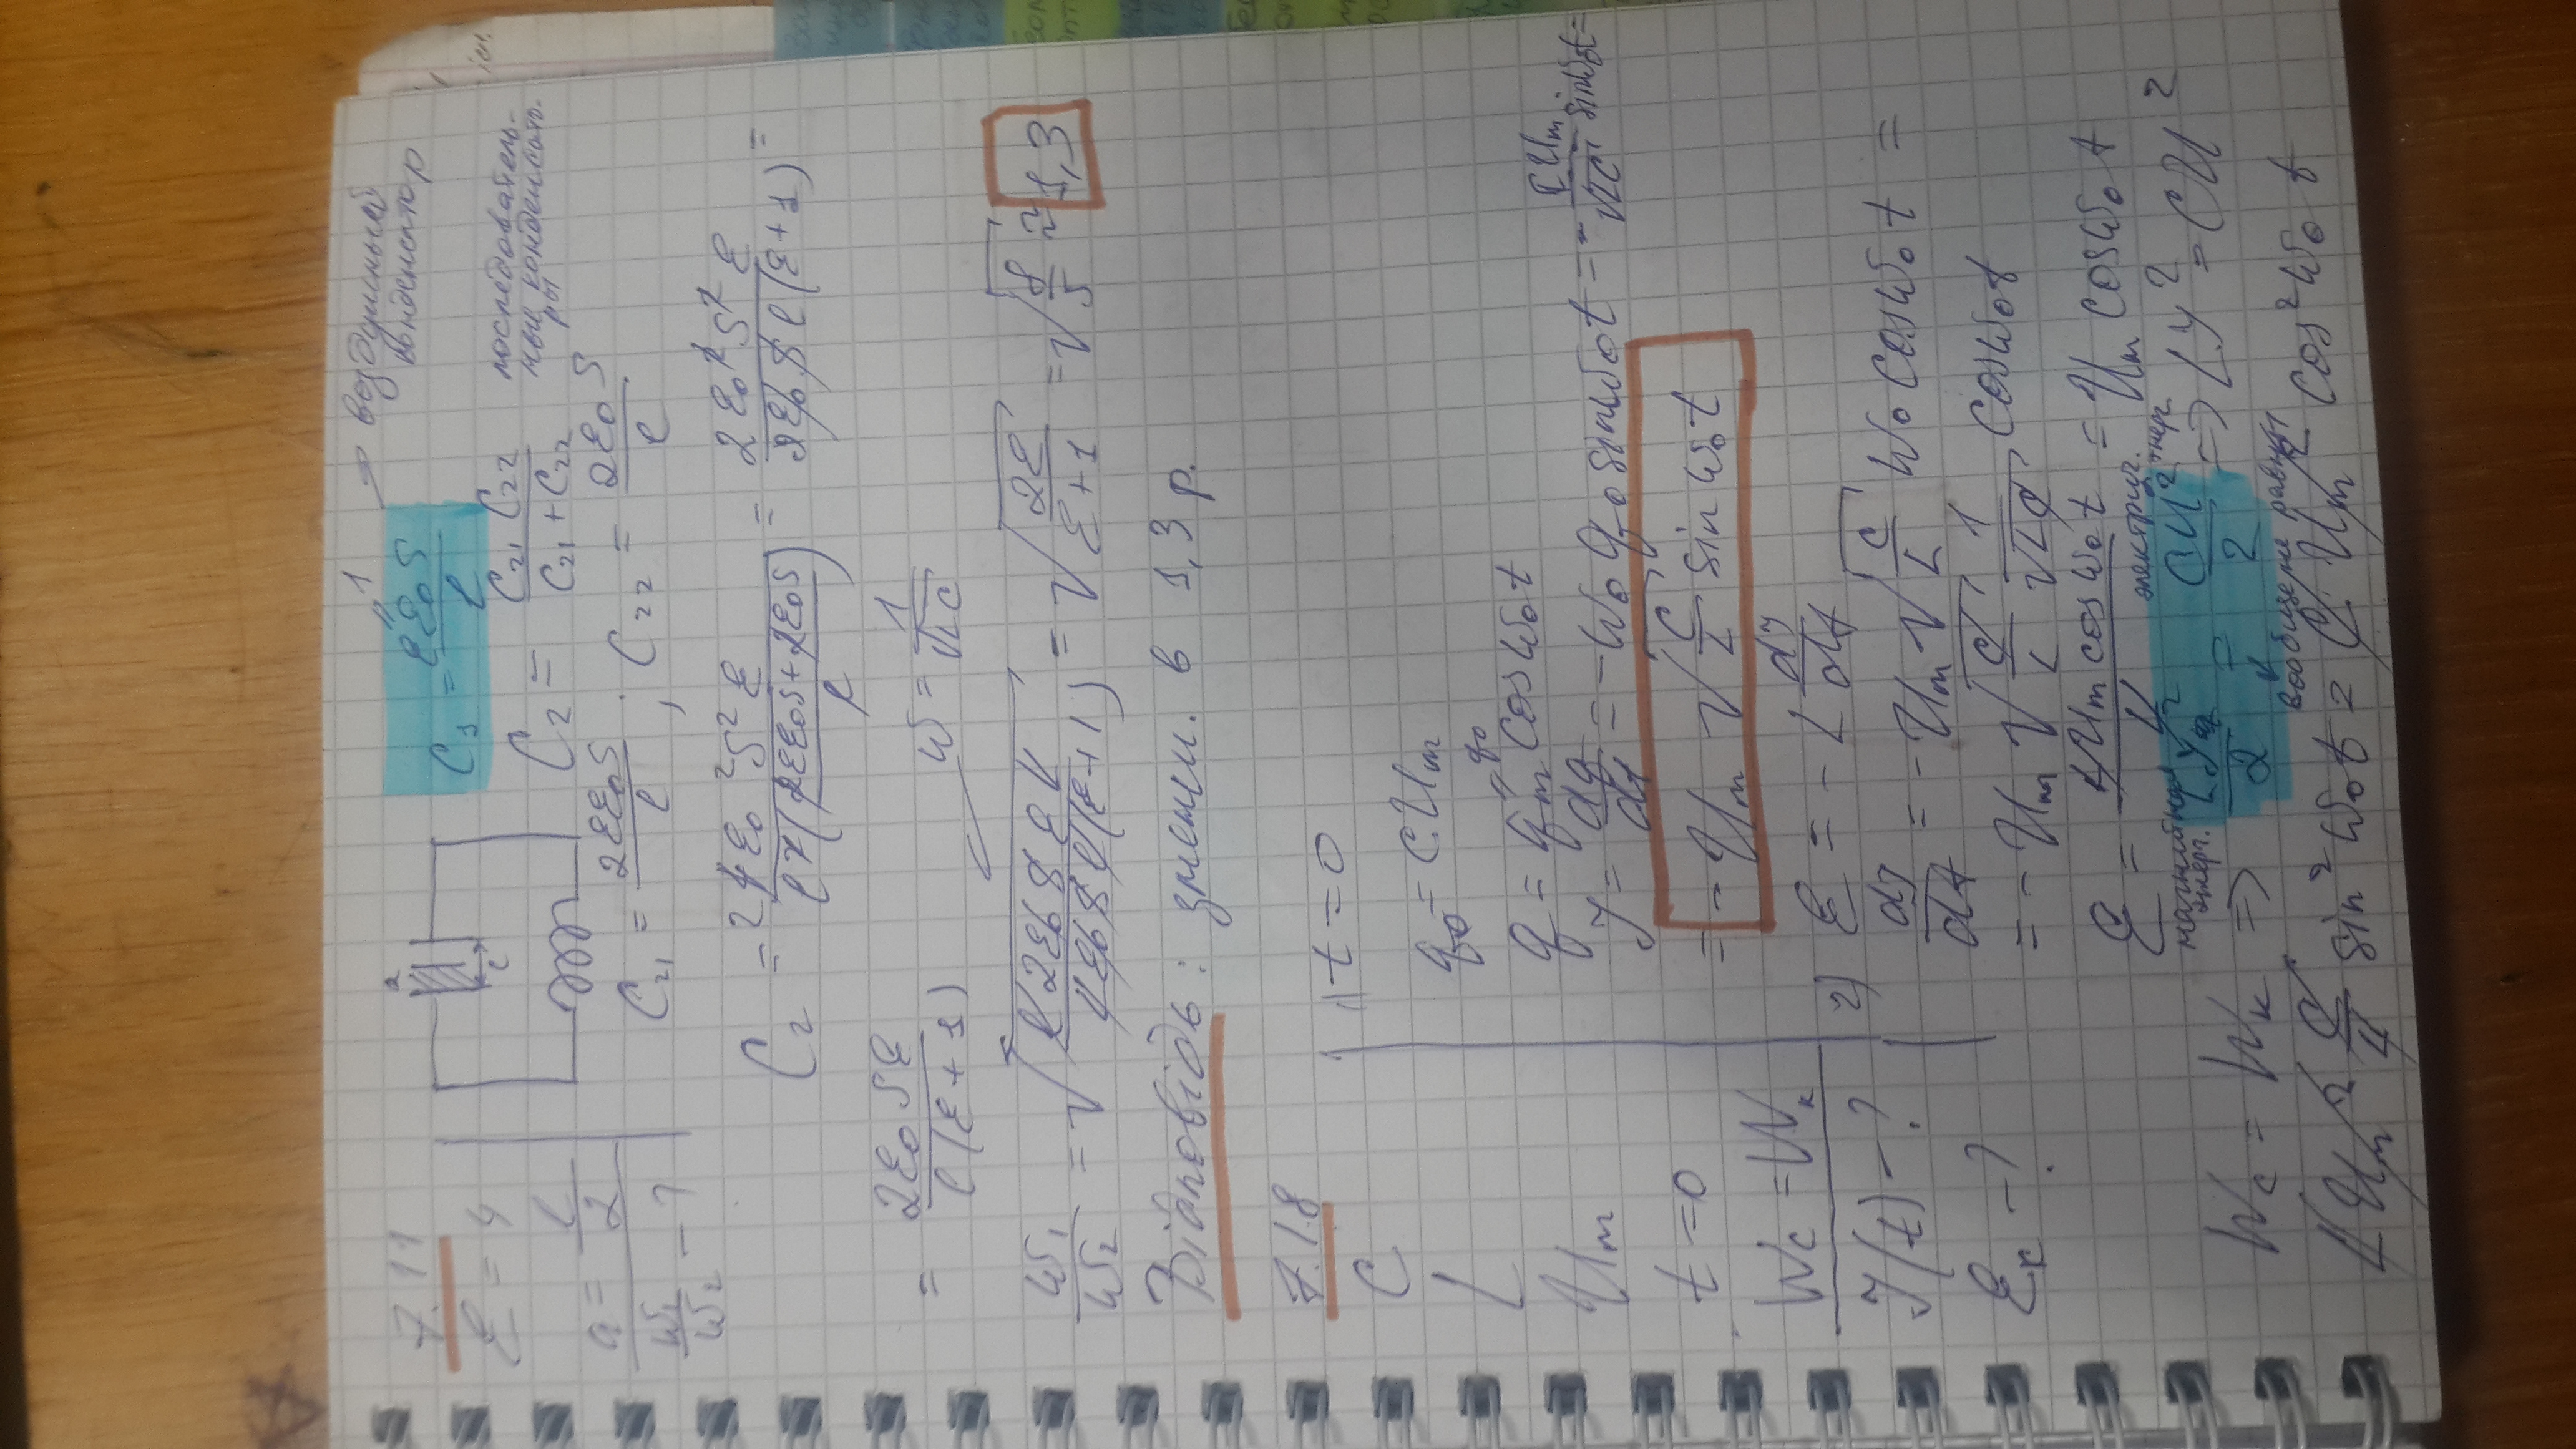 7.11
ε = 4
a = l/2
ω₁/ω₂ - ?
a
l
C₁ = εε₀S/l
" 1
воздушный
конденсатор
C₂ = C₂₁ C₂₂ / (C₂₁ + C₂₂)
последователь-
ные конденсато-
ры
C₂₁ = 2εε₀S/l ; C₂₂ = 2ε₀S/l
C₂ = 2 4ε₀²S²ε / (l²((2εε₀S + 2ε₀S)/l)) = 2ε₀²S²ε / (2ε₀S l(ε+1)) =
= 2ε₀Sε / (l(ε+1))
ω = 1/√LC
ω₁/ω₂ = √(L2ε₀SεL / (Lε₀S l(ε+1))) = √(2ε/(ε+1)) = √(8/5) ≈ 1,3
Відповідь: зменш. в 1,3 р.
7.1.8
C
L
Uₘ
t = 0
W_C = W_к
J(t) - ?
ℰ_к - ?
1) t = 0
q₀ = CUₘ
" q₀
q = qₘ cosω₀t
J = dq/dt = -ω₀q₀sinω₀t = - CUₘ/√LC sinω₀t =
= -Uₘ √(C/L) sinω₀t
2) ℰ = -L dJ/dt
dJ/dt = -Uₘ √(C/L) ω₀ cosω₀t =
= -Uₘ √(C/L) 1/√LC cosω₀t
ℰ = LUₘcosω₀t / L = Uₘ cosω₀t
магнитная
энерг.
электрич.
энерг.
W_C = W_к ⇒ LJ²/2 = CU²/2 ⇒ LJ² = CU²
вообще не равны
LUₘ² C/L sin²ω₀t = C Uₘ² cos²ω₀t